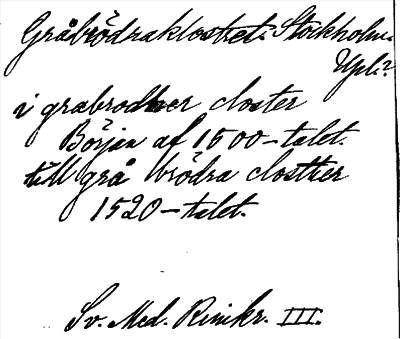 Gråbrödraklostret. Stockholm.
Upl.?
i grabrodher closter
Början af 1500-talet.
till grå brödra closther
1520-talet.
Sv. Med. Rimkr. III.